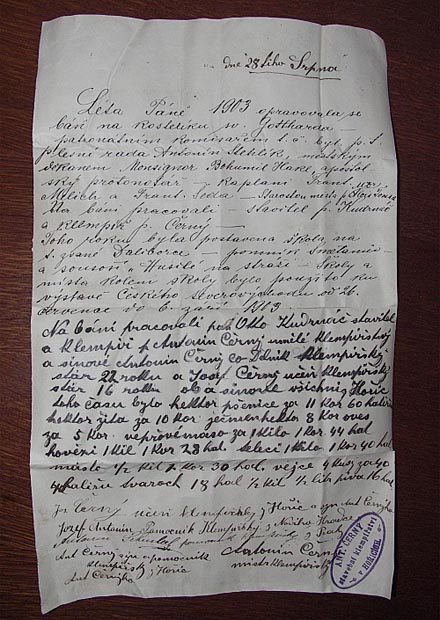 dne 28tiho Srpna
Léta Páně 1903 opravovala se
báň na kostelíku sv. Gottharda –
patronátním komisařem t. č. byl p. S.
rada Antonín městským
děkanem Monsignor Bohumil Hakl apošt
ský protonotář – kaplani Frant.
a Frant. Šeda – Starostou města p.
Na báni pracovali – stavitel p. Kudrnáč
a klempíř p. Černý –
Toho roku byla postavena škola na
t. zvané Daliborce – pomník Smetanův –
a sousoší „Husité na stráži“ – Školy a
místa kolem školy bylo použito ku
výstavě Českého severovýchodu od 26.
července do 6. září 1903
Na báni pracovali pan Otto Kudrnáč stavitel
a klempíř p Antonín Černý umělé klempířství
a sinové Antonín Černý co Dělník klempířský
stár 22 roku a Josef Černý učeň klempířský
stár 16 roku oba sinové všichni z Hořic
toho času bylo hektor pšenice za 11 Kor 60 haléřu
hektor žita za 10 kor. ječmen hekto 8 kor oves
za 5 Kor. vepřové maso za 1 kilo 1 Kor. 44 hal
hovězí 1 kil 1 Kor 28 hal. telecí 1 kilo 1 Kor 40 hal
máslo 1/2 kil 1 Kor 30 hal. vejce 4 kusy za 20
haléřu 18 hal 1/2 kil 1/2 lit piva 16 hal
Černý učeň klempířský z Hořic a syn Ant Černýho
Jozef Antonín Pomocník Klempířský z Nového Hradce
Antonín pomocník z Prahy
Ant Černý sin a pomocník
klempířský z Hořic
Ant Černýho
Antonín Černý
mistr klempířský
ANT. ČERNÝ
stavební klempířství
v HOŘICÍCH.